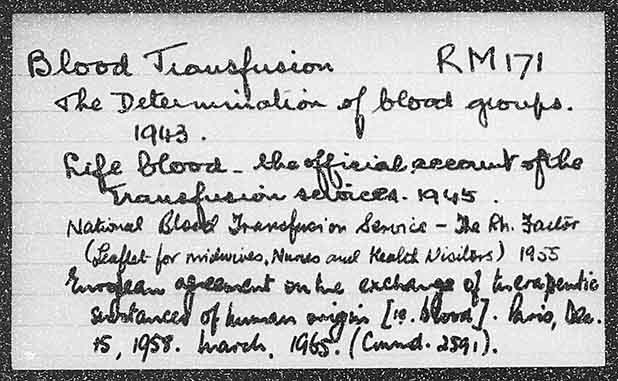 Blood Transfusion RM171
The Determination of blood groups.
1943.
Life blood - the official account of the
Transfusion services. 1945.
National Blood Transfusion Service - The Rh. Factor
(Leaflet for midwives, Nurses and Health Visitors) 1955
European agreement on the exchange of therapeutic
substances of human origin [ie. blood]. Paris, Dec.
15, 1958. March, 1965. (Cmnd. 2591).